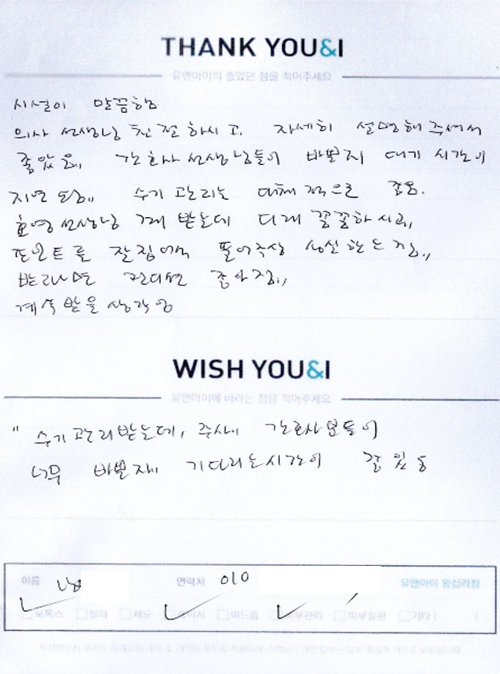 THANK YOU&I
유앤아이의 좋았던 점을 적어주세요
시설이 말끔함
의사 선생님 친절하시고 자세히 설명해주셔서
좋았음. 간호사 선생님들이 바쁜지 대기 시간이
지연 됨. 수기 관리는 대체적으로 좋음.
효영선생님 께 받는데 되게 꼼꼼하시고,
포인트를 잘 집어서 풀어주심
받으면 좋아짐.
계속 받을 생각임
WISH YOU&I
유앤아이에 바라는 점을 적어주세요
" 수기 관리받는데, 간호사분들이
너무 바쁜지 기다리는시간이 길 있음
이름
연락처 010
유앤아이 왕십리점
보톡스 필러 제모 레이저 여드름 피부관리 피부질환 기타 ( )